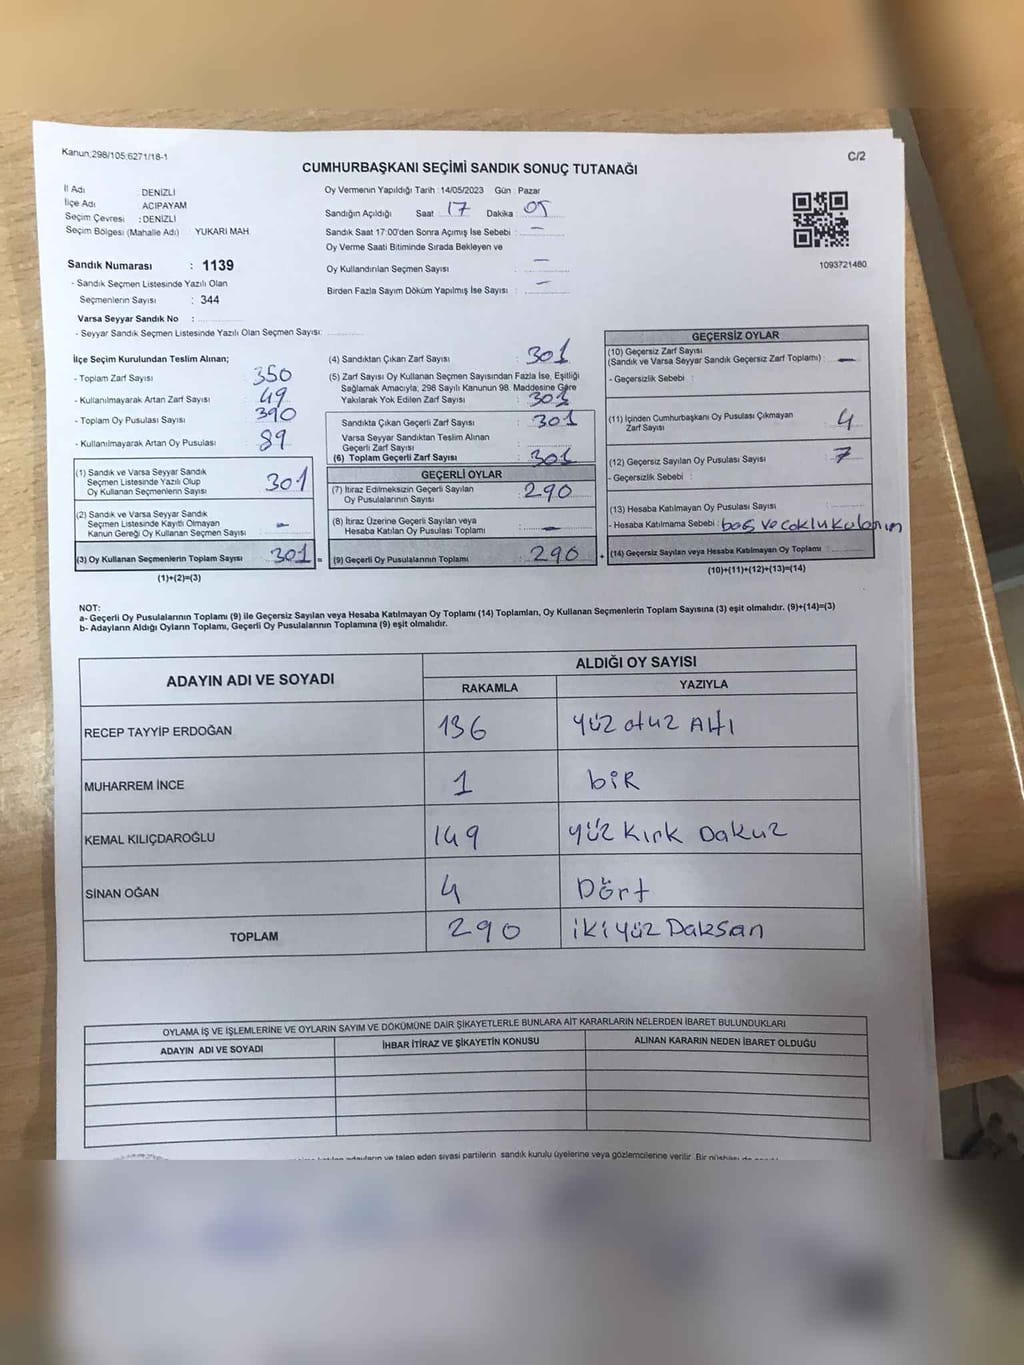 Kanun;298/105;6271/18-1
C/2
CUMHURBAŞKANI SEÇİMİ SANDIK SONUÇ TUTANAĞI
İl Adı : DENİZLİ
İlçe Adı : ACIPAYAM
Seçim Çevresi : DENİZLİ
Seçim Bölgesi (Mahalle Adı) YUKARI MAH.
Sandık Numarası : 1139
- Sandık Seçmen Listesinde Yazılı Olan
Seçmenlerin Sayısı : 344
Varsa Seyyar Sandık No :
- Seyyar Sandık Seçmen Listesinde Yazılı Olan Seçmen Sayısı:
Oy Vermenin Yapıldığı Tarih : 14/05/2023 Gün : Pazar
Sandığın Açıldığı Saat : 17 Dakika : 05
Sandık Saat 17:00'den Sonra Açımış İse Sebebi : —
Oy Verme Saati Bitiminde Sırada Bekleyen ve
Oy Kullandırılan Seçmen Sayısı : —
Birden Fazla Sayım Döküm Yapılmış İse Sayısı : —
1093721480
İlçe Seçim Kurulundan Teslim Alınan;
- Toplam Zarf Sayısı : 350
- Kullanılmayarak Artan Zarf Sayısı : 49
- Toplam Oy Pusulası Sayısı : 390
- Kullanılmayarak Artan Oy Pusulası : 89
(1) Sandık ve Varsa Seyyar Sandık
Seçmen Listesinde Yazılı Olup
Oy Kullanan Seçmenlerin Sayısı : 301
(2) Sandık ve Varsa Seyyar Sandık
Seçmen Listesinde Kayıtlı Olmayan
Kanun Gereği Oy Kullanan Seçmen Sayısı : —
(3) Oy Kullanan Seçmenlerin Toplam Sayısı : 301 =
(1)+(2)=(3)
(4) Sandıktan Çıkan Zarf Sayısı : 301
(5) Zarf Sayısı Oy Kullanan Seçmen Sayısından Fazla İse, Eşitliği
Sağlamak Amacıyla; 298 Sayılı Kanunun 98. Maddesine Göre
Yakılarak Yok Edilen Zarf Sayısı : 301
Sandıkta Çıkan Geçerli Zarf Sayısı : 301
Varsa Seyyar Sandıktan Teslim Alınan
Geçerli Zarf Sayısı :
(6) Toplam Geçerli Zarf Sayısı : 301
GEÇERLİ OYLAR
(7) İtiraz Edilmeksizin Geçerli Sayılan
Oy Pusulalarının Sayısı : 290
(8) İtiraz Üzerine Geçerli Sayılan veya
Hesaba Katılan Oy Pusulası Toplamı : —
(9) Geçerli Oy Pusulalarının Toplamı : 290 +
GEÇERSİZ OYLAR
(10) Geçersiz Zarf Sayısı
(Sandık ve Varsa Seyyar Sandık Geçersiz Zarf Toplamı) : —
- Geçersizlik Sebebi :
(11) İçinden Cumhurbaşkanı Oy Pusulası Çıkmayan
Zarf Sayısı : 4
(12) Geçersiz Sayılan Oy Pusulası Sayısı : 7
- Geçersizlik Sebebi :
(13) Hesaba Katılmayan Oy Pusulası Sayısı :
- Hesaba Katılmama Sebebi : boş ve çoklu kulanım
(14) Geçersiz Sayılan veya Hesaba Katılmayan Oy Toplamı :
(10)+(11)+(12)+(13)=(14)
NOT:
a- Geçerli Oy Pusulalarının Toplamı (9) ile Geçersiz Sayılan veya Hesaba Katılmayan Oy Toplamı (14) Toplamları, Oy Kullanan Seçmenlerin Toplam Sayısına (3) eşit olmalıdır. (9)+(14)=(3)
b- Adayların Aldığı Oyların Toplamı, Geçerli Oy Pusulalarının Toplamına (9) eşit olmalıdır.
ADAYIN ADI VE SOYADI ALDIĞI OY SAYISI
RAKAMLA YAZIYLA
RECEP TAYYİP ERDOĞAN 136 yüz otuz Altı
MUHARREM İNCE 1 biR
KEMAL KILIÇDAROĞLU 149 yüz Kırk Dokuz
SİNAN OĞAN 4 Dört
TOPLAM 290 iki yüz Doksan
OYLAMA İŞ VE İŞLEMLERİNE VE OYLARIN SAYIM VE DÖKÜMÜNE DAİR ŞİKAYETLERLE BUNLARA AİT KARARLARIN NELERDEN İBARET BULUNDUKLARI
ADAYIN ADI VE SOYADI İHBAR İTİRAZ VE ŞİKAYETİN KONUSU ALINAN KARARIN NEDEN İBARET OLDUĞU
adayların ve talep eden siyasi partilerin sandık kurulu üyelerine veya gözlemcilerine verilir. Bir nüshası da